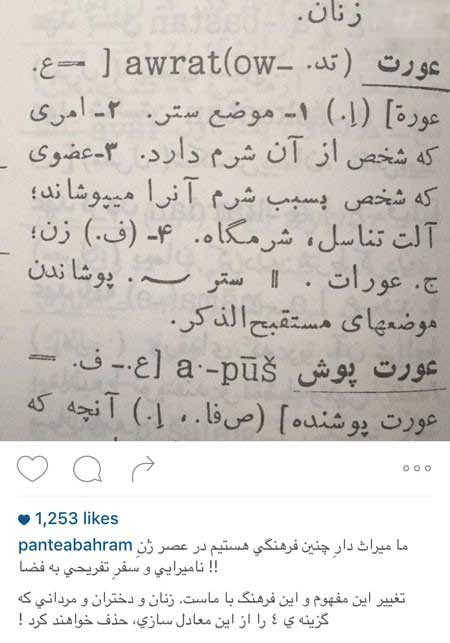 زنان.
عورت (تد. awrat(ow- [ =ع.
عورة] (اِ.) ۱- موضع ستر. ۲- امری
که شخص از آن شرم دارد. ۳-عضوی
که شخص بسبب شرم آنرا میپوشاند؛
آلت تناسل، شرمگاه. ۴- (ف.) زن؛
ج. عورات . || ستر ــِ . پوشاندن
موضعهای مستقبح‌الذکر.
عورت پوش a.-pūš [ع.- ف. =
عورت پوشنده] (ص‌فا.، اِ.) آنچه که
1,253 likes
panteabahram ما میراث دارِ چنین فرهنگي هستیم در عصر ژنِ
نامیرایي و سفرِ تفریحي به فضا !!
تغییر این مفهوم و این فرهنگ با ماست. زنان و دختران و مرداني که
گزینه ي ٤ را از این معادل سازي، حذف خواهند کرد !